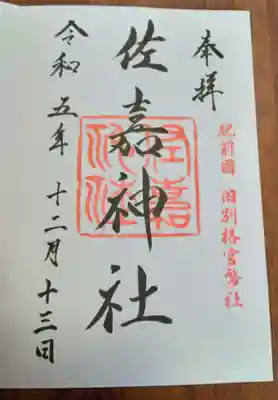 奉拝
肥前國 旧別格官幣社
佐嘉神社
令和五年 十二月 十三日